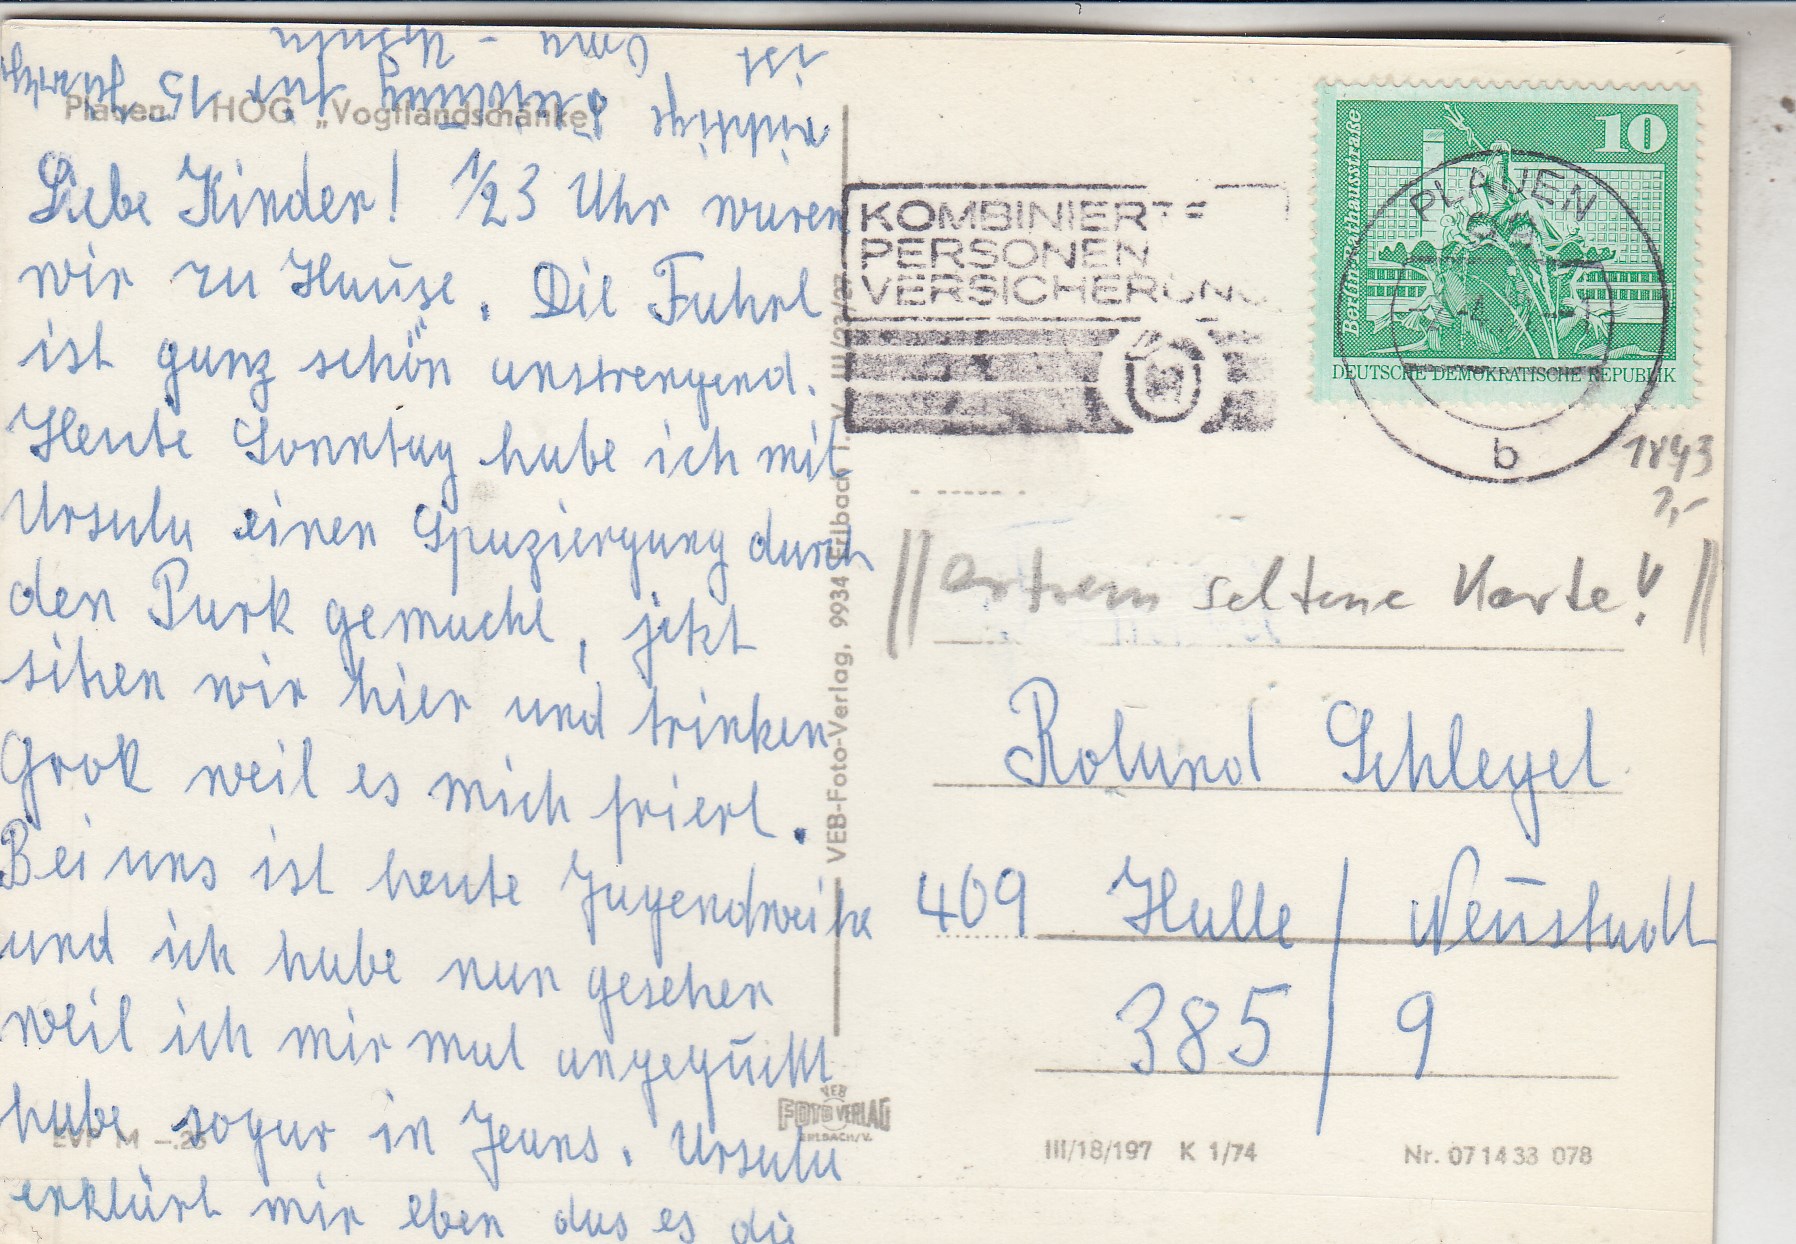 Plauen. HOG „Vogtlandschänke"
Liebe Kinder! 1/23 Uhr waren
wir zu Hause. Die Fahrt
ist ganz schön anstrengend.
Heute Sonntag habe ich mit
Ursula einen Spaziergang durch
den Park gemacht, jetzt
sitzen wir hier und trinken
Grok weil es mich friert.
Bei uns ist heute Jugendweihe
und ich habe nun gesehen
weil ich mir mal angeguckt
habe sogar in Jeans. Ursula
erklärt mir eben das es die
richtige Kleidung für 15 jährige
ist Oma -
EVP M -.25
VEB-Foto-Verlag, 9934 Erlbach i. V. III/23/27
VEB
FOTO VERLAG
ERLBACH/V.
KOMBINIERTE
PERSONEN
VERSICHERUNG
10
Berlin, Rathausstraße
DEUTSCHE DEMOKRATISCHE REPUBLIK
PLAUEN
b
1843
2,-
extrem seltene Karte!
Roland Schlegel
409 Halle / Neustadt
385 / 9
III/18/197 K 1/74
Nr. 07 14 33 078